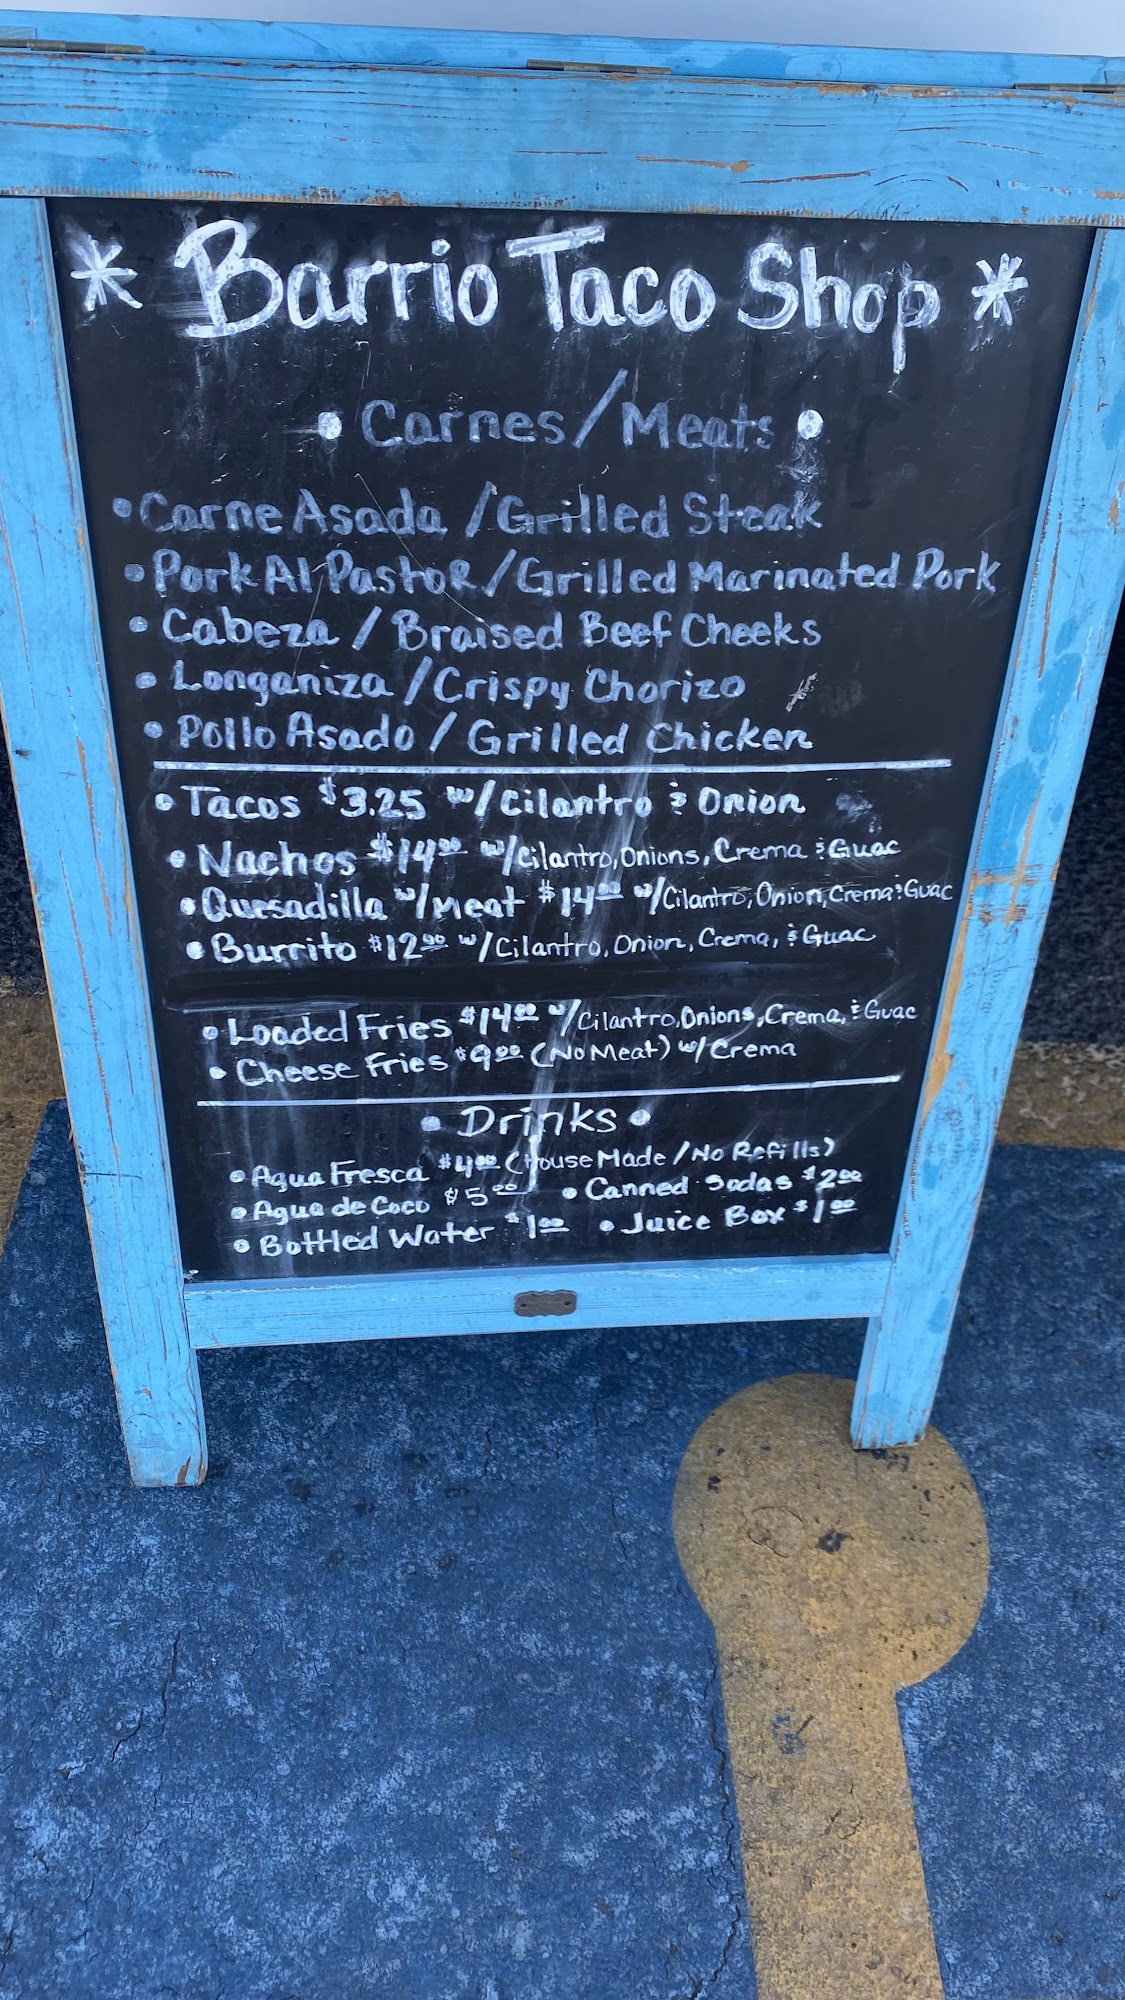 * Barrio Taco Shop *
• Carnes/Meats •
• Carne Asada / Grilled Steak
• Pork Al Pastor / Grilled Marinated Pork
• Cabeza / Braised Beef Cheeks
• Longaniza / Crispy Chorizo
• Pollo Asado / Grilled Chicken
• Tacos $3.25 w/ Cilantro & Onion
• Nachos $14.00 w/ Cilantro, Onions, Crema & Guac
• Quesadilla w/ Meat $14.00 w/ Cilantro, Onion, Crema & Guac
• Burrito $12.00 w/ Cilantro, Onion, Crema, & Guac
• Loaded Fries $14.00 w/ Cilantro, Onions, Crema, & Guac
• Cheese Fries $9.00 (No Meat) w/ Crema
• Drinks •
• Agua Fresca $4.00 (House Made / No Refills)
• Agua de Coco $5.00 • Canned Sodas $2.00
• Bottled Water $1.00 • Juice Box $1.00